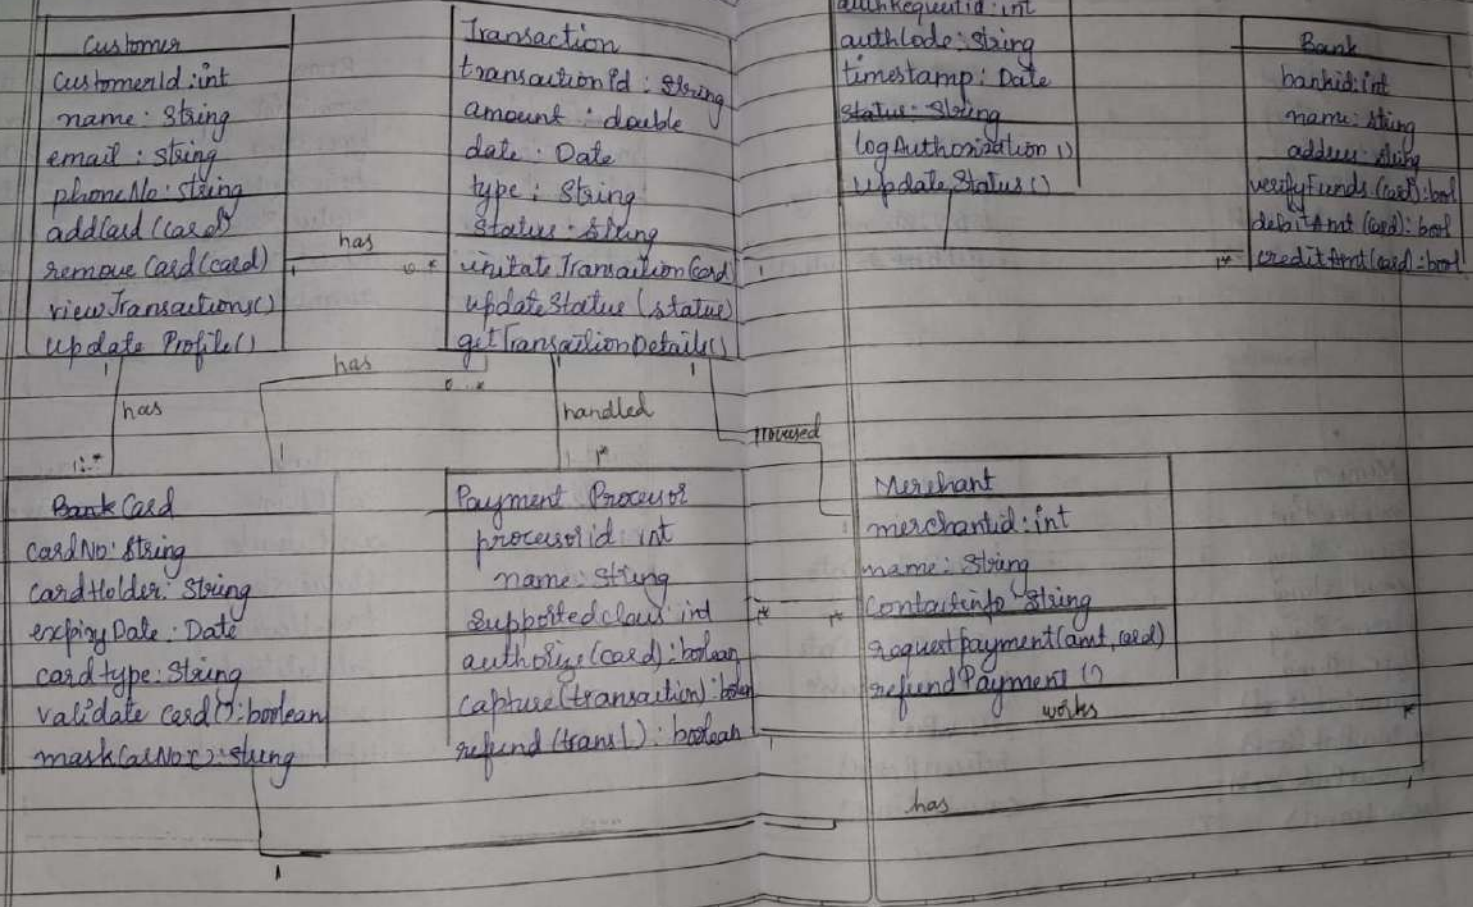 Customer
CustomerId : int
name : String
email : string
phoneNo : string
addCard (card)
remove Card (card)
viewTransactions()
update Profile()
has
1
0..*
Transaction
transactionId : String
amount : double
date : Date
type : String
status : string
updateStatus (status)
getTransactionDetails()
1
authRequestid : int
authCode : String
timestamp : Date
status : String
logAuthorization ()
update Status ()
1*
Bank
bankid : int
name : string
address : string
verifyFunds (card) : bool
debitAmt (card) : bool
creditAmt (card) : bool
1
has
1..*
has
0..*
1
handled
1
1*
1
Bank Card
cardNo : String
cardHolder : String
expiry Date : Date
card type : String
validate card () : boolean
1
Payment Processor
processor id : int
name : String
authorize (card) : boolean
capture (transaction) : boolean
refund (trans1) : boolean
1
Merchant
merchantid : int
name : String
contactinfo String
request payment (amt, card)
refund Payment ()
works
*
has
1